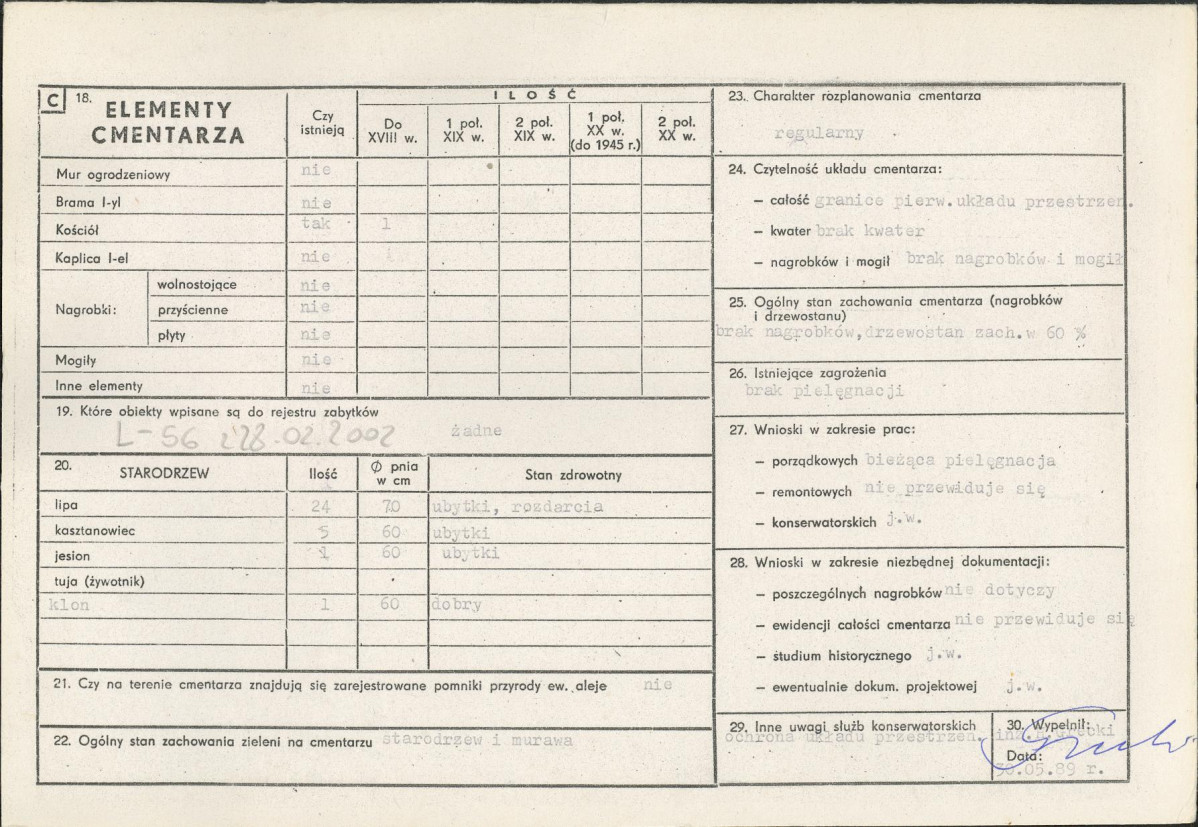 C 18. ELEMENTY CMENTARZA
Czy istnieją
ILOŚĆ
Do XVIII w.
1 poł. XIX w.
2 poł. XIX w.
1 poł. XX w. (do 1945 r.)
2 poł. XX w.
Mur ogrodzeniowy nie
Brama I-yl nie
Kościół tak 1
Kaplica I-el nie
Nagrobki: wolnostojące nie
przyścienne nie
płyty nie
Mogiły nie
Inne elementy nie
19. Które obiekty wpisane są do rejestru zabytków
L-56 z 28.02.2002 żadne
20. STARODRZEW Ilość Ø pnia w cm Stan zdrowotny
lipa 24 70 ubytki, rozdarcia
kasztanowiec 5 60 ubytki
jesion 1 60 ubytki
tuja (żywotnik)
klon 1 60 dobry
21. Czy na terenie cmentarza znajdują się zarejestrowane pomniki przyrody ew. aleje nie
22. Ogólny stan zachowania zieleni na cmentarzu starodrzew i murawa
23. Charakter rozplanowania cmentarza
regularny
24. Czytelność układu cmentarza:
– całość granice pierw.układu przestrzen.
– kwater brak kwater
– nagrobków i mogił brak nagrobków i mogił
25. Ogólny stan zachowania cmentarza (nagrobków
i drzewostanu)
brak nagrobków,drzewostan zach.w 60 %
26. Istniejące zagrożenia
brak pielęgnacji
27. Wnioski w zakresie prac:
– porządkowych bieżąca pielęgnacja
– remontowych nie przewiduje się
– konserwatorskich j.w.
28. Wnioski w zakresie niezbędnej dokumentacji:
– poszczególnych nagrobków nie dotyczy
– ewidencji całości cmentarza nie przewiduje się
– studium historycznego j.w.
– ewentualnie dokum. projektowej j.w.
29. Inne uwagi służb konserwatorskich
ochrona układu przestrzen.
30. Wypełnił:
Data:
30.05.89 r.